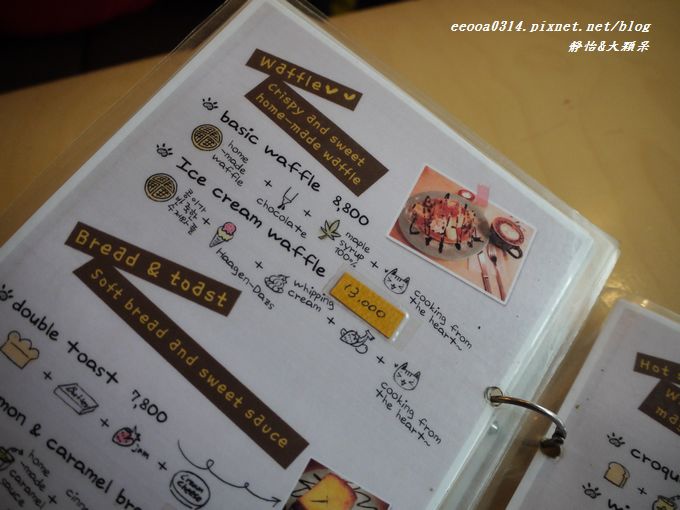 eeooa0314.pixnet.net/blog
靜怡&大顆呆
Waffle
Crispy and sweet
home-made waffle
basic waffle 8,800
home
-made
waffle
+
chocolate
+
maple
syrup
100%
+
cooking from
the heart~
Ice cream waffle
13,000
수제와플
+
Haagen-Dazs
+
whipping
cream
+
+
cooking from
the heart~
Bread & toast
Soft bread and sweet sauce
double toast 7,800
+
Butter
+
jam
+
Cream
cheese
mon & caramel bre
home
-made
caramel
sauce
+
cinn
Hot s
W
ma
croqu
+
wi